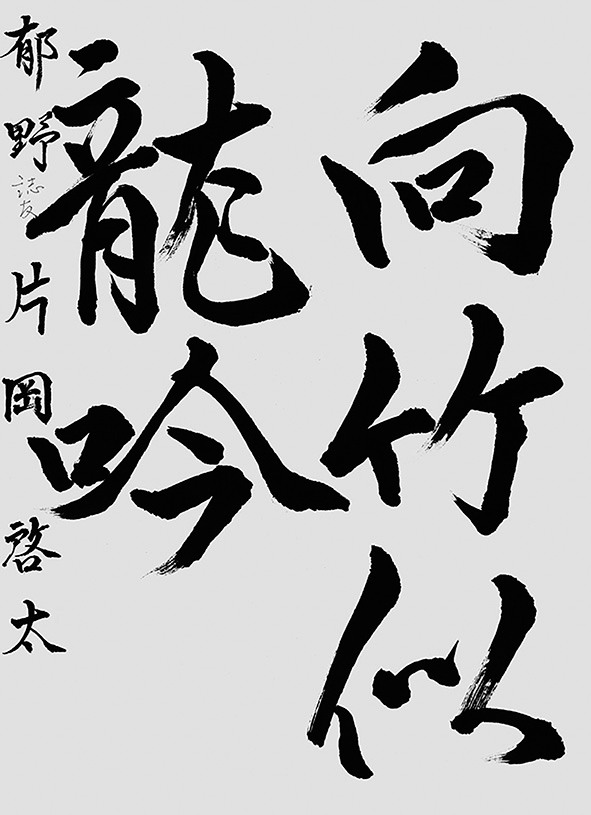 向竹似
龍吟
郁野 誌友 片岡啓太